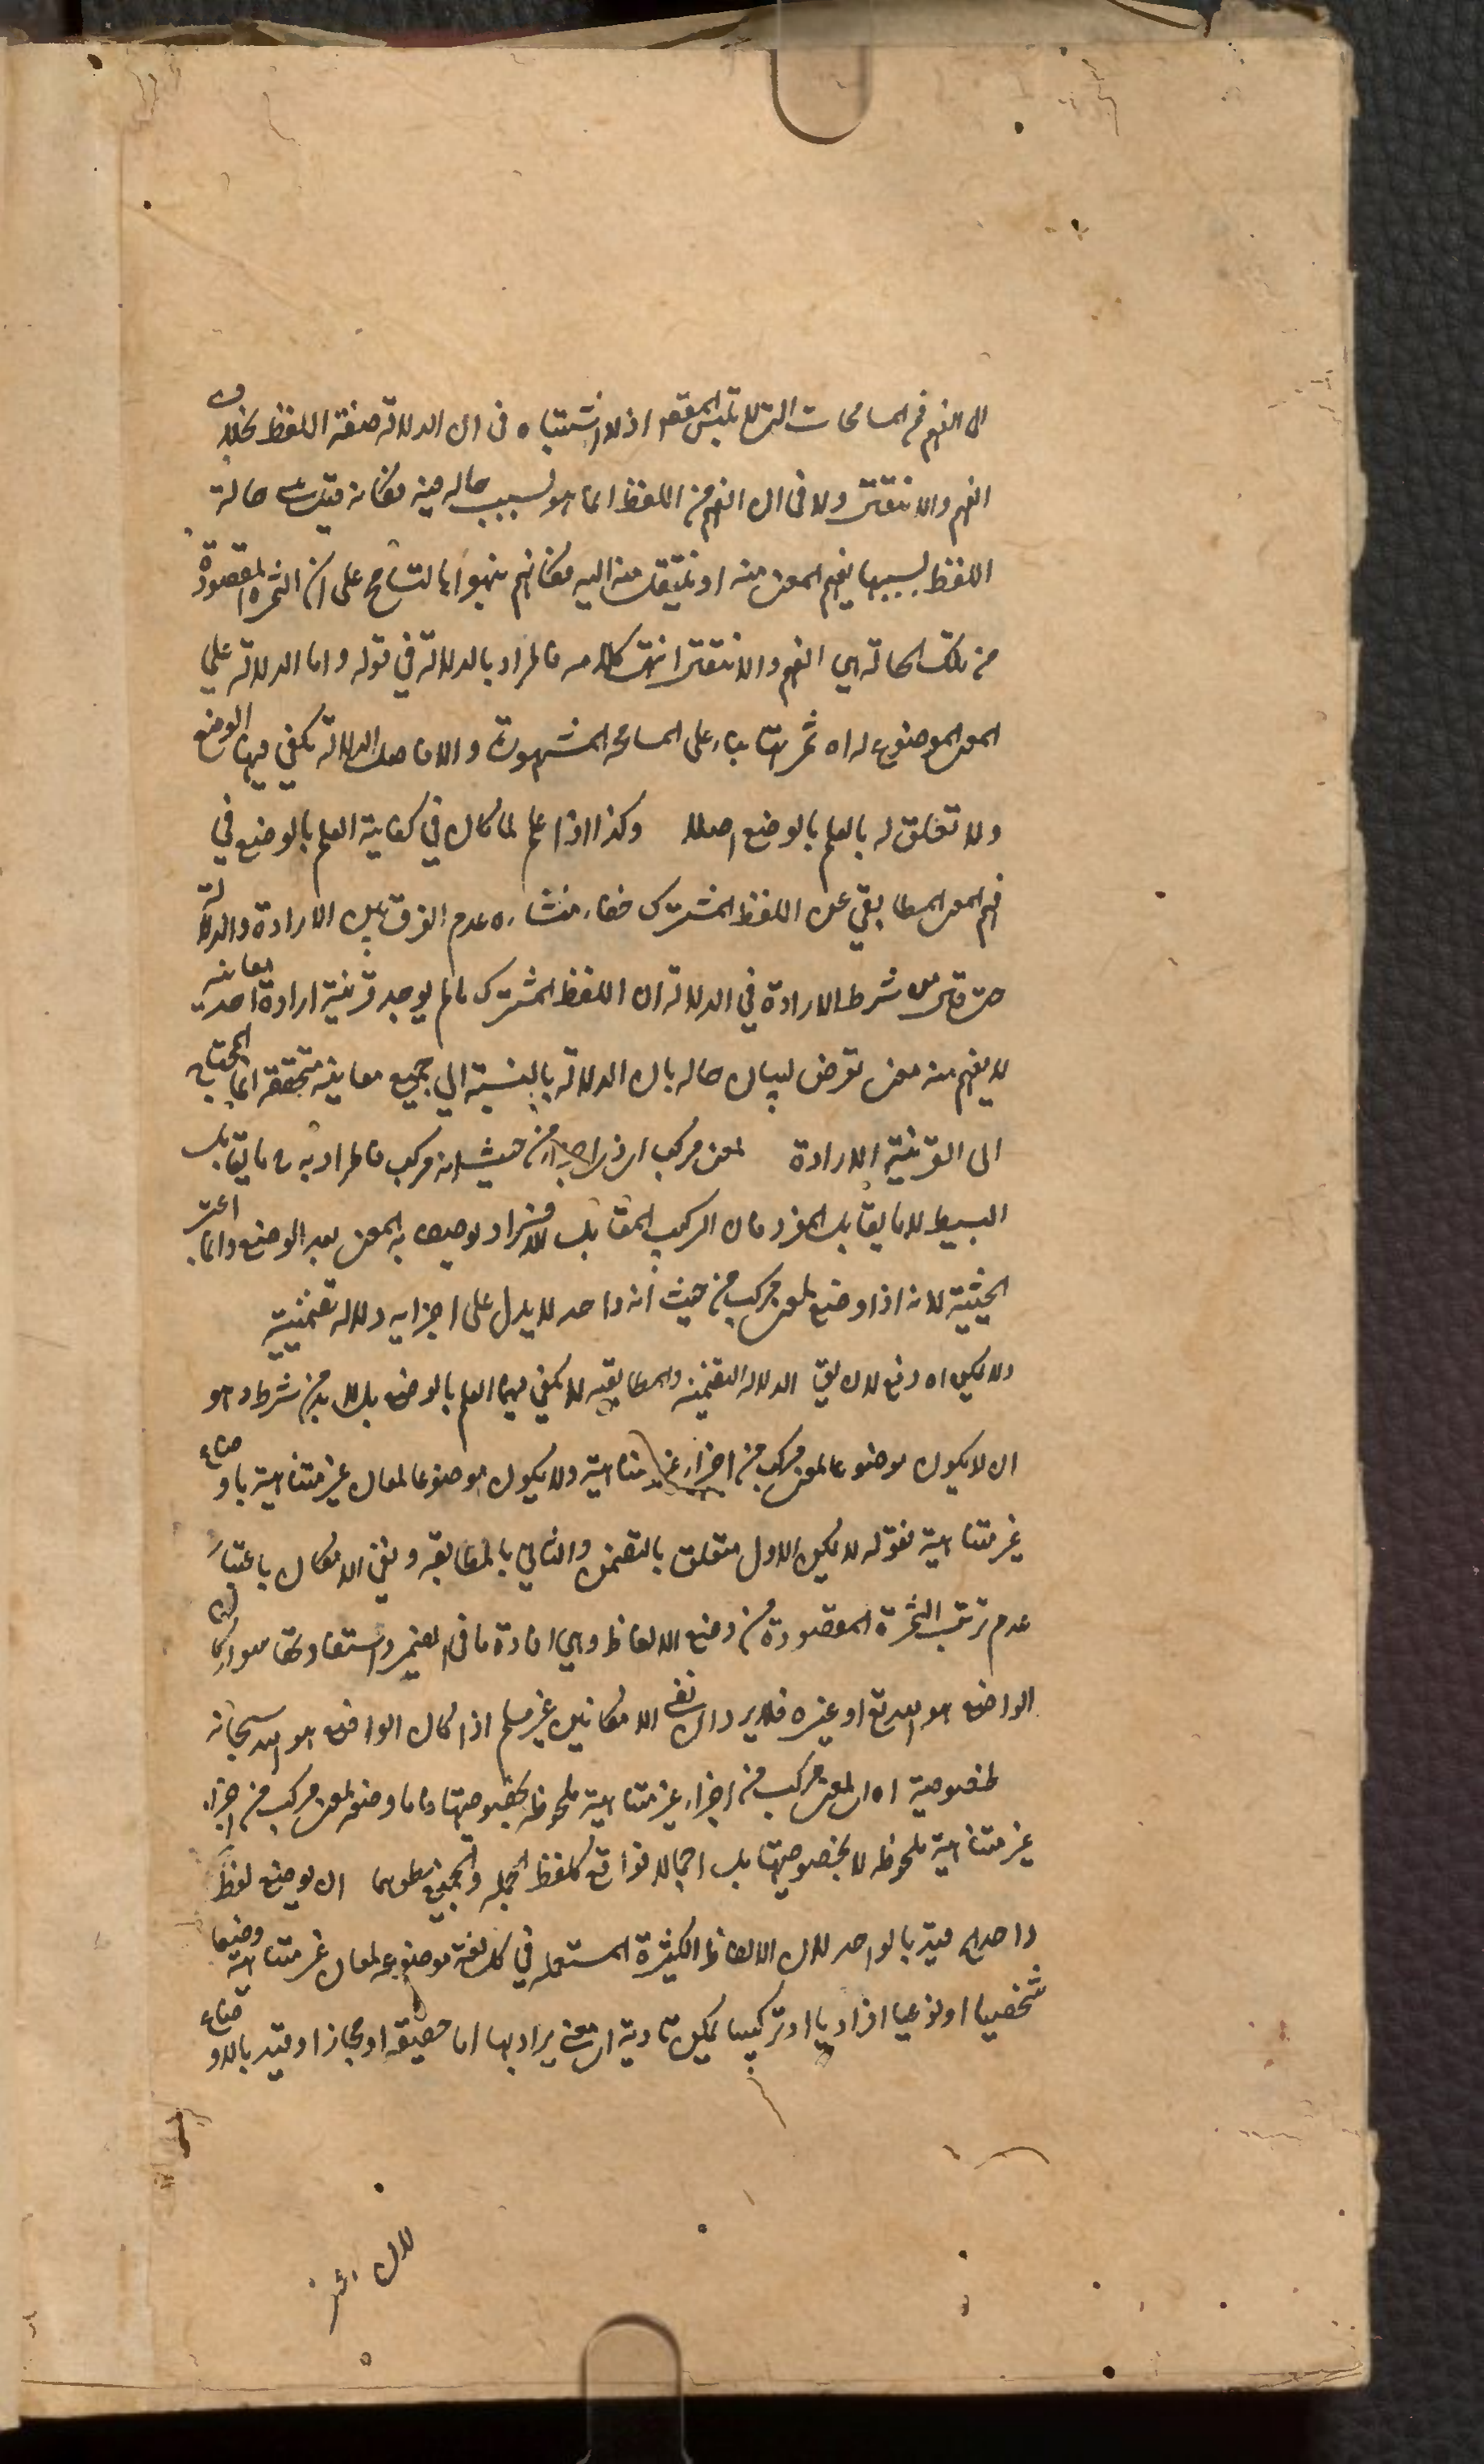 ان الفهم من المسامحات التي لا تلبس المقصود اذ لا اشتباه في ان الدلالة صفة اللفظ بخلاف
الفهم والانتقال ولا في ان الفهم من اللفظ انما هو بسبب حاله فيه فكانه قيل هي حالة
اللفظ بسببها يفهم المعنى منه او ينتقل منه اليه فكانهم نبهوا بالتسامح على ان الثمرة المقصودة
من تلك الحالة هي الفهم والانتقال انتهى كلامه فالمراد بالدلالة في قوله واما الدلالة على
المعنى الموضوع له اه ثمرتها بناء على المسامحة المشهورة والا فاصل الدلالة يكفي فيها الوضع
ولا تعلق له بالعلم بالوضع اصلا وكذا اذا علم لما كان في كفاية العلم بالوضع في
فهم المعنى المطابقي عن اللفظ المشترك خفاء منشاءه عدم الفرق بين الارادة والدلالة
حتى قال من شرط الارادة في الدلالة ان اللفظ المشترك ما لم يوجد قرينة ارادة احد معانيه
لا يفهم منه معنى تعرض لبيان حاله بان الدلالة بالنسبة الى جميع معانيه متحققة انما المحتاج
الى القرينة الارادة لمعنى مركب اي ذي اجزاء من حيث انه مركب فالمراد به ما يقابل
البسيط لا ما يقابل المفرد فان التركيب المقابل للافراد يوصف به المعنى بعد الوضع وانما اعتبر
الحيثية لانه اذا وضع لمعنى مركب من حيث انه واحد لا يدل على اجزايه دلالة تضمنية
ولا يمكن اه دفع لان يق الدلالة التضمنية والمطابقية لا يكفي فيهما العلم بالوضع بل لا بد من شرط وهو
ان لا يكون موضوعا لمعنى مركب من اجزاء غير متناهية ولا يكون موضوعا لمعان غير متناهية باوضاع
غير متناهية فقوله لا يمكن الاول متعلق بالتضمن والثاني بالمطابقة ونفي الامكان باعتبار
عدم ترتب الثمرة المقصودة من وضع الالفاظ وهي افادة ما في الضمير واستفادتها سواء كان
الواضع هو الله تع او غيره فلا يرد ان نفي الامكانين غير مسلم اذا كان الواضع هو الله سبحانه
لخصوصية اه اي لمعنى مركب من اجزاء غير متناهية ملحوظة بخصوصيتها واما وضعه لمعنى مركب من اجزاء
غير متناهية ملحوظة لا بخصوصيتها بل اجمالا فواقع كلفظ الجملة والجميع ان يوضع لفظ
واحد اه قيد بالواحد لان الالفاظ الكثيرة المستعملة في كل لغة موضوعة لمعان غير متناهية وضعا
شخصيا او نوعيا افراديا او تركيبيا يمكن تادية اي معنى يراد بها اما حقيقة او مجازا وقيد بالاوضاع
لان